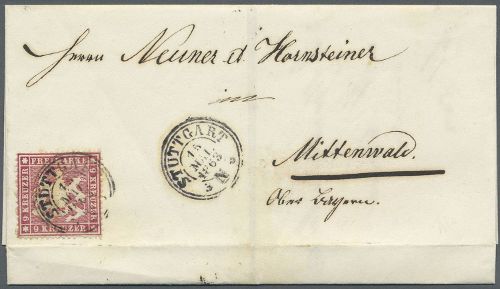 Herrn Neuner & Hornsteiner
in
Mittenwald.
Ober Bayern.
STUTTGART
15
MAI
1863
3 N
FREIMARKE
9 KREUZER
9 KREUZER
9 KREUZER
STUTT